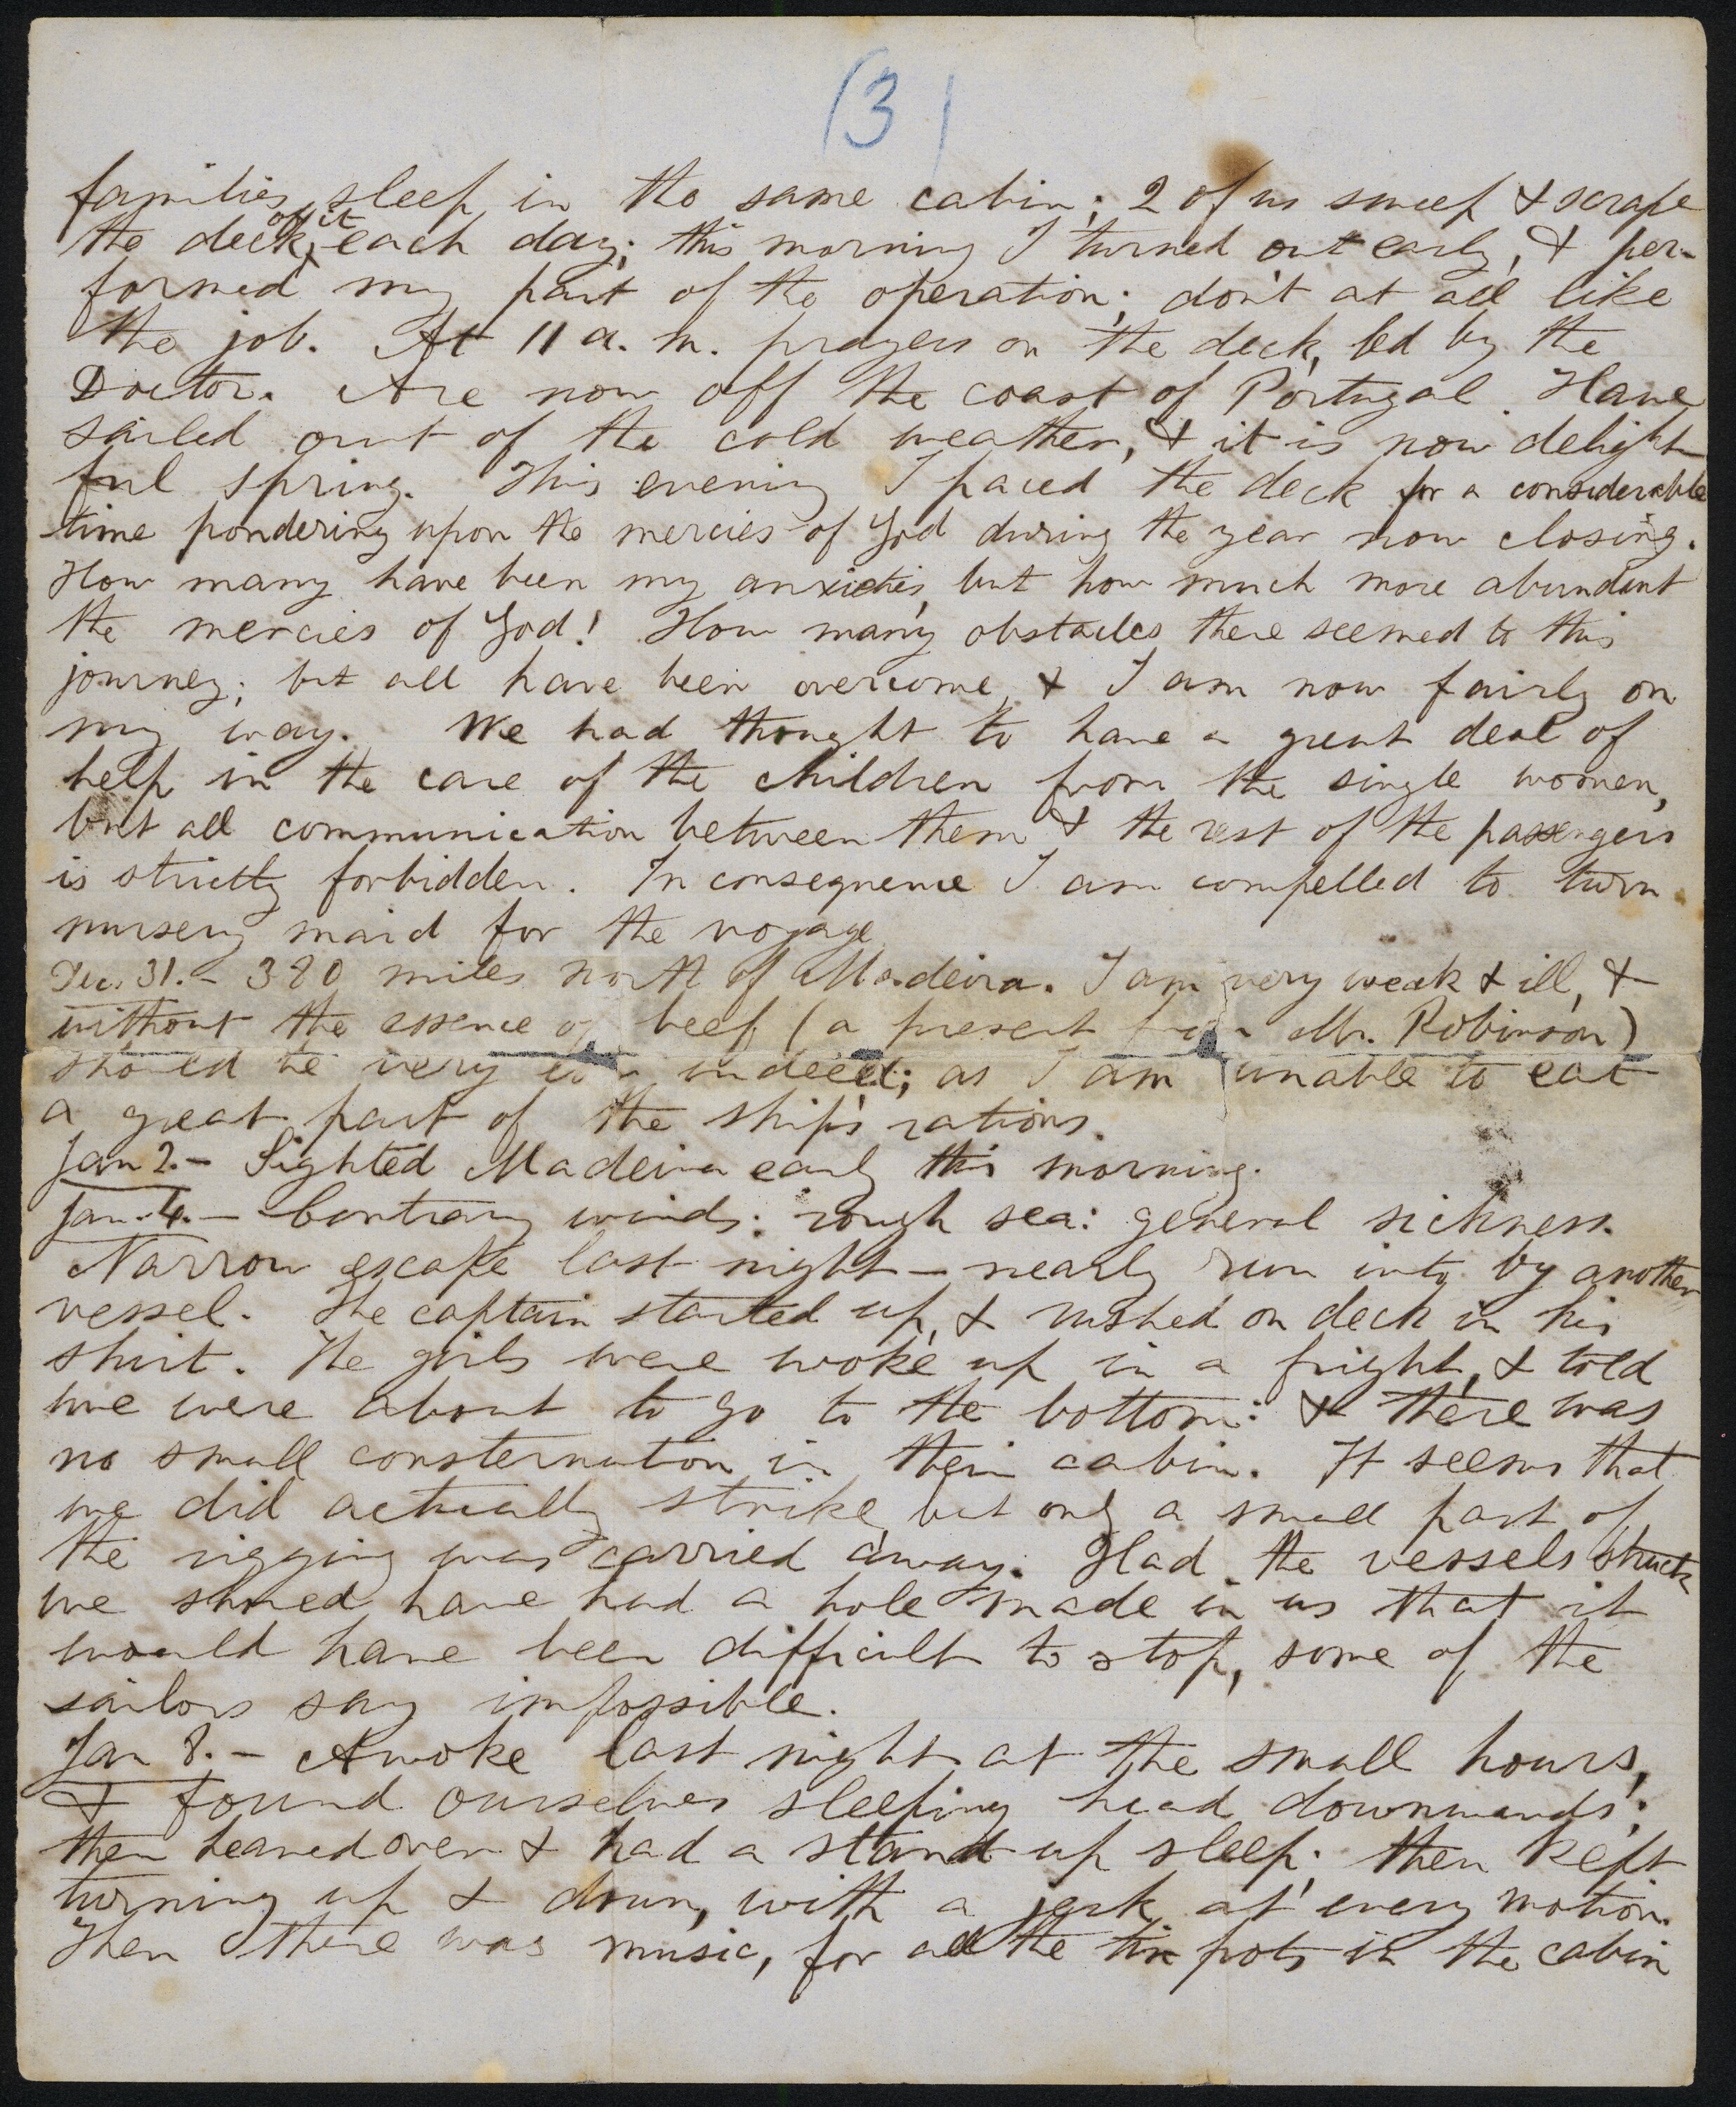 (3)
families sleep in the same cabin; 2 of us sweep & scrape
the deck of it each day; this morning I turned out early, & per-
formed my part of the operation; don't at all like
the job. At 11 a.m. prayers on the deck, led by the
Doctor. Are now off the coast of Portugal. Have
sailed out of the cold weather, & it is now delight-
ful spring. This evening I paced the deck for a considerable
time pondering upon the mercies of God during the year now closing.
How many have been my anxieties, but how much more abundant
the mercies of God! How many obstacles there seemed to this
journey; but all have been overcome, & I am now fairly on
my way. We had thought to have a great deal of
help in the care of the children from the single women,
but all communication between them & the rest of the passengers
is strictly forbidden. In consequence I am compelled to turn
nursery maid for the voyage
Dec. 31.- 380 miles north of Madeira. I am very weak & ill, &
without the essence of beef (a present from Mr. Robinson)
should be very indeed; as I am unable to eat
a great part of the ship's rations.
Jan 2.- Sighted Madeira early this morning.
Jan. 4.- Contrary winds: rough sea: general sickness.
Narrow escape last night - nearly run into by another
vessel. The captain started up, & rushed on deck in his
shirt. The girls were woke up in a fright, & told
we were about to go to the bottom: & there was
no small consternation in their cabin. It seems that
we did actually strike, but only a small part of
the rigging was carried away. Had the vessels struck
we should have had a hole made in us that it
would have been difficult to stop, some of the
sailors say impossible.
Jan 8.- Awoke last night at the small hours,
& found ourselves sleeping head downwards;
then heaved over & had a stand up sleep; then kept
turning up & down, with a jerk at every motion.
Then there was music, for all the tin pots in the cabin